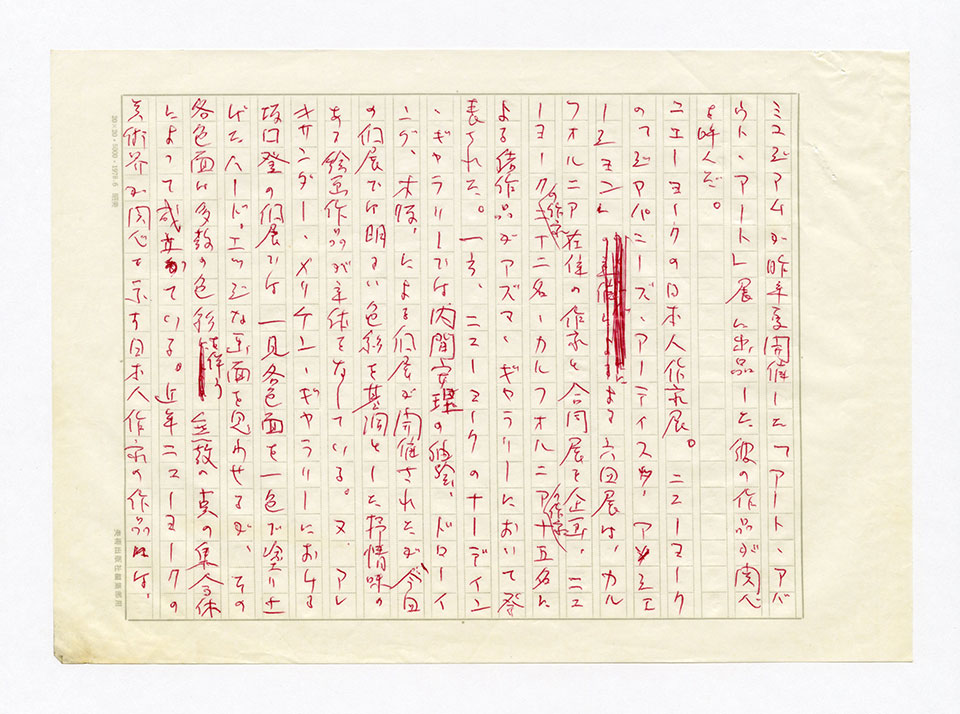 ミュゼアムが昨年夏開催した「アート・アバ
ウト・アート」展に出品した彼の作品が関心
を呼んだ。
ニューヨークの日本人作家展。ニューヨーク
のジャパニーズ・アーティスタ・アソシエ
ーション」による六回展は、カル
フォルニア在住の作家と合同展を企画、ニュ
ーヨークの作家十二名・カルフォルニアの作家十五名に
よる諸作品がアズマ・ギャラリーにおいて発
表された。一方、ニューヨークのナーディン
・ギャラリーでは、内間安瑆の油絵、ドローイ
ング、木版、による個展が開催されたが、今回
の個展では明るい色彩を基調とした抒情味の
ある絵画作品が主体をなしている。又、アレ
キサンダー・メリケン・ギャラリーにおける
坂口登の個展では一見各色面を一色で塗り上
げたハード・エッジな画面を思わせるが、その
各色面は多数の色彩を伴う無数の点の集合体
によって成立っている。近年ニューヨークの
美術界が関心を示す日本人作家の作品には、
20×20・1000・1978.6
美術出版社編集部用